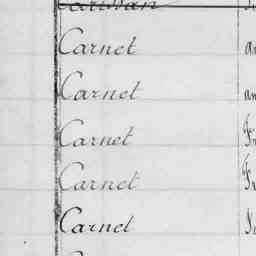 Carnet
Carnet
Carnet
Carnet
Carnet